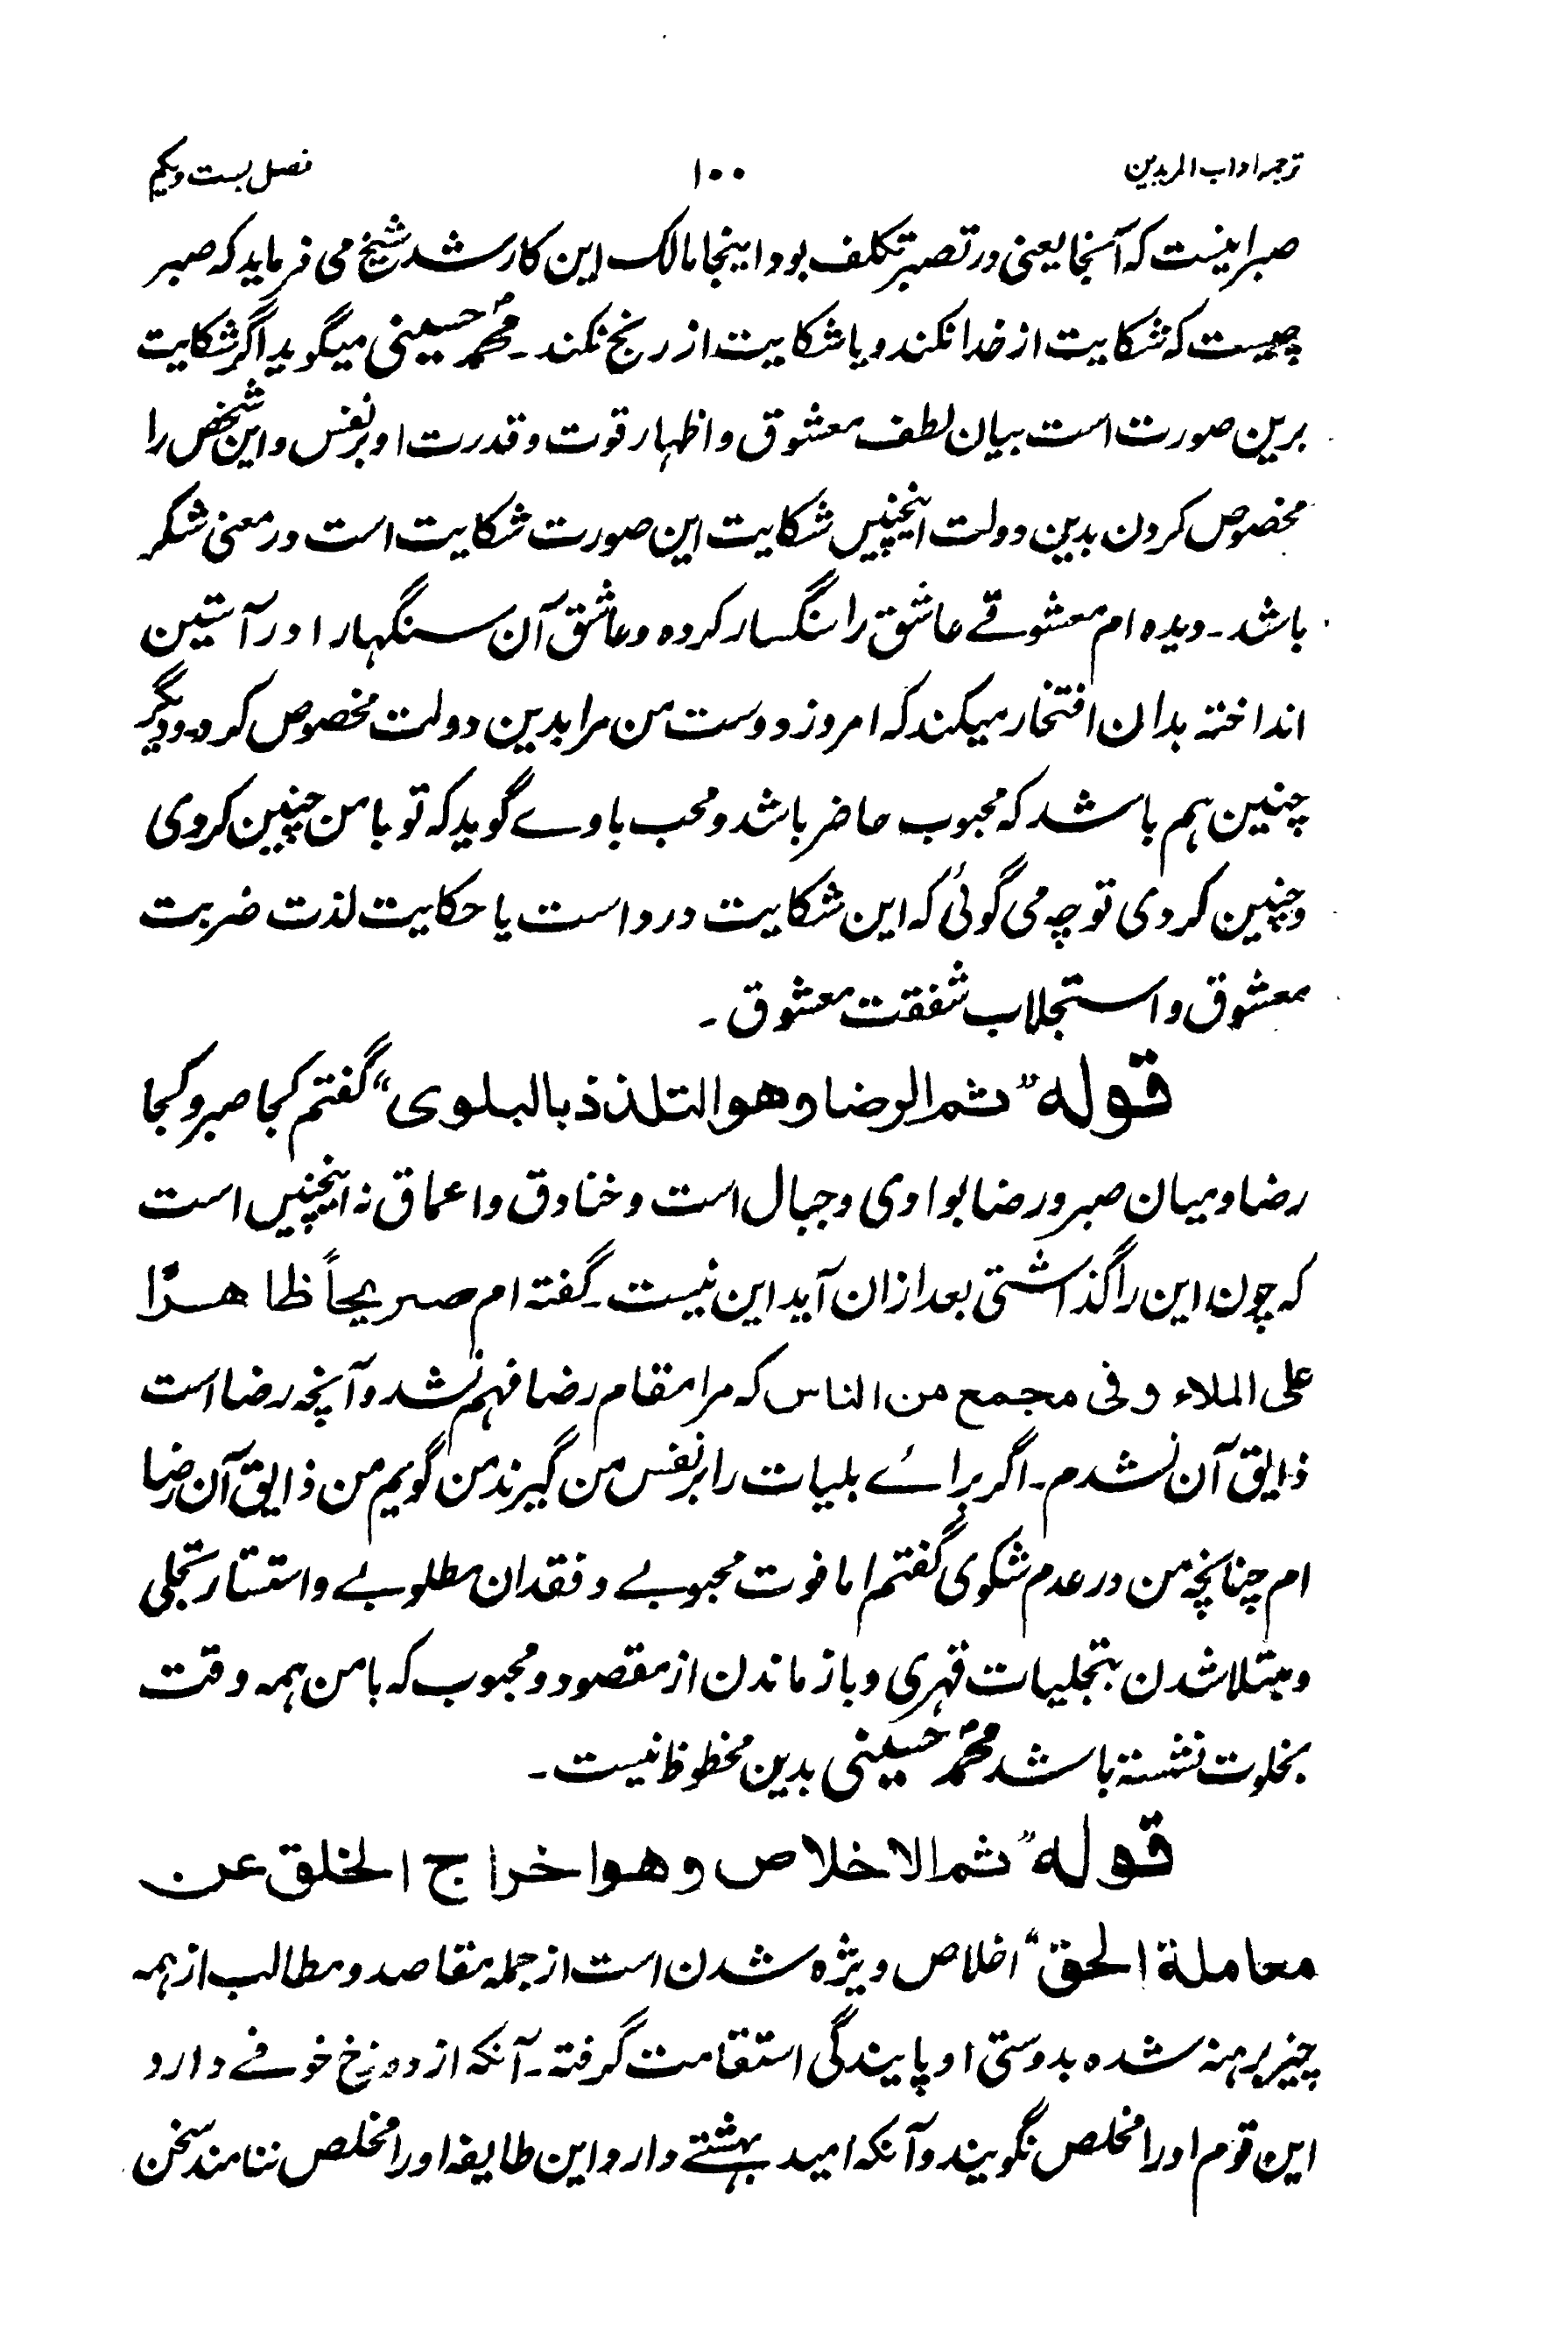 ترجمہ آداب المریدین ۱۰۰ فصل بست و یکم
صبر اینست کہ آنجا یعنی در تصبر تکلف بود اینجا مالک این کار شد شیخ می فرماید کہ صبر
چیست کہ شکایت از خدا نکند و یا شکایت از رنج نکند۔ محمد حسینی میگوید اگر شکایت
برین صورت است بیان لطف معشوق و اظہار قوت و قدرت او بر نفس و این شخص را
مخصوص کردن بدین دولت اینچنیں شکایت این صورت شکایت است در معنی شکر
باشد۔ دیدہ ام معشوقے عاشق را سنگسار کردہ و عاشق آن سنگہارا در آستین
انداختہ بدان افتخار میکند کہ امروز دوست من مرا بدین دولت مخصوص کرد و دیگر
چنین ہم باشد کہ محبوب حاضر باشد و محب باوے گوید کہ تو با من چنین کردی
و چنین کردی تو چہ می گوئی کہ این شکایت درد است یا حکایت لذت ضربت
معشوق و استجلاب شفقت معشوق۔
قولہ "ثم الرضا وهو التلذذ بالبلوی" گفتم کجا صبر و کجا
رضا و میان صبر و رضا بوادی و جبال است و خنادق و اعماق نہ اینچنیں است
کہ چون این را گذاشتی بعد ازان آید این نیست۔ گفتہ ام صریحاً ظاهرًا
علی الملاء و فی مجمع من الناس کہ مرا مقام رضا فہم نشد و آنچہ رضا است
ذایق آن نشدم۔ اگر براے بلیات را بر نفس من گیرند من گویم من ذایق آن رضا
ام چنانچہ من در عدم شکوی گفتم اما فوت محبوبے و فقدان مطلوبے و استتار تجلی
و مبتلا شدن بتجلیات قہری و باز ماندن از مقصود و محبوب کہ با من ہمہ وقت
بخلوت نشستہ باشد محمد حسینی بدین محظوظ نیست۔
قولہ "ثم الاخلاص وهو اخراج الخلق عن
معاملة الحق" اخلاص ویژہ شدن است از جملہ مقاصد و مطالب از ہمہ
چیز برہنہ شدہ بدوستی او پایندگی استقامت گرفتہ۔ آنکہ از دوزخ خوفے دارد
این قوم اورا مخلص نگویند و آنکہ امید بہشتے دارد این طایفہ اورا مخلص ننامند سخن